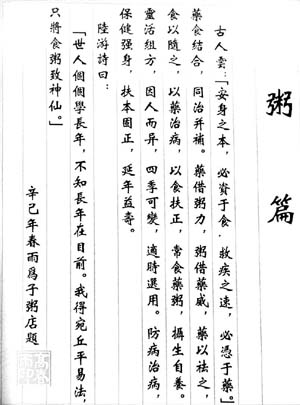 粥篇
古人雲：「安身之本，必資于食．救疾之速，必憑于藥。」
藥食結合，同治并補。藥借粥力，粥借藥威，藥以祛之，
食以隨之，以藥治病，以食扶正，常食藥粥，攝生自養。
靈活組方，因人而异，四季可變，適時選用。防病治病，
保健强身，扶本固正，延年益壽。
陸游詩曰：
「世人個個學長年，不知長年在目前。我得宛丘平易法，
只將食粥致神仙。」
辛已年春雨爲子粥店題